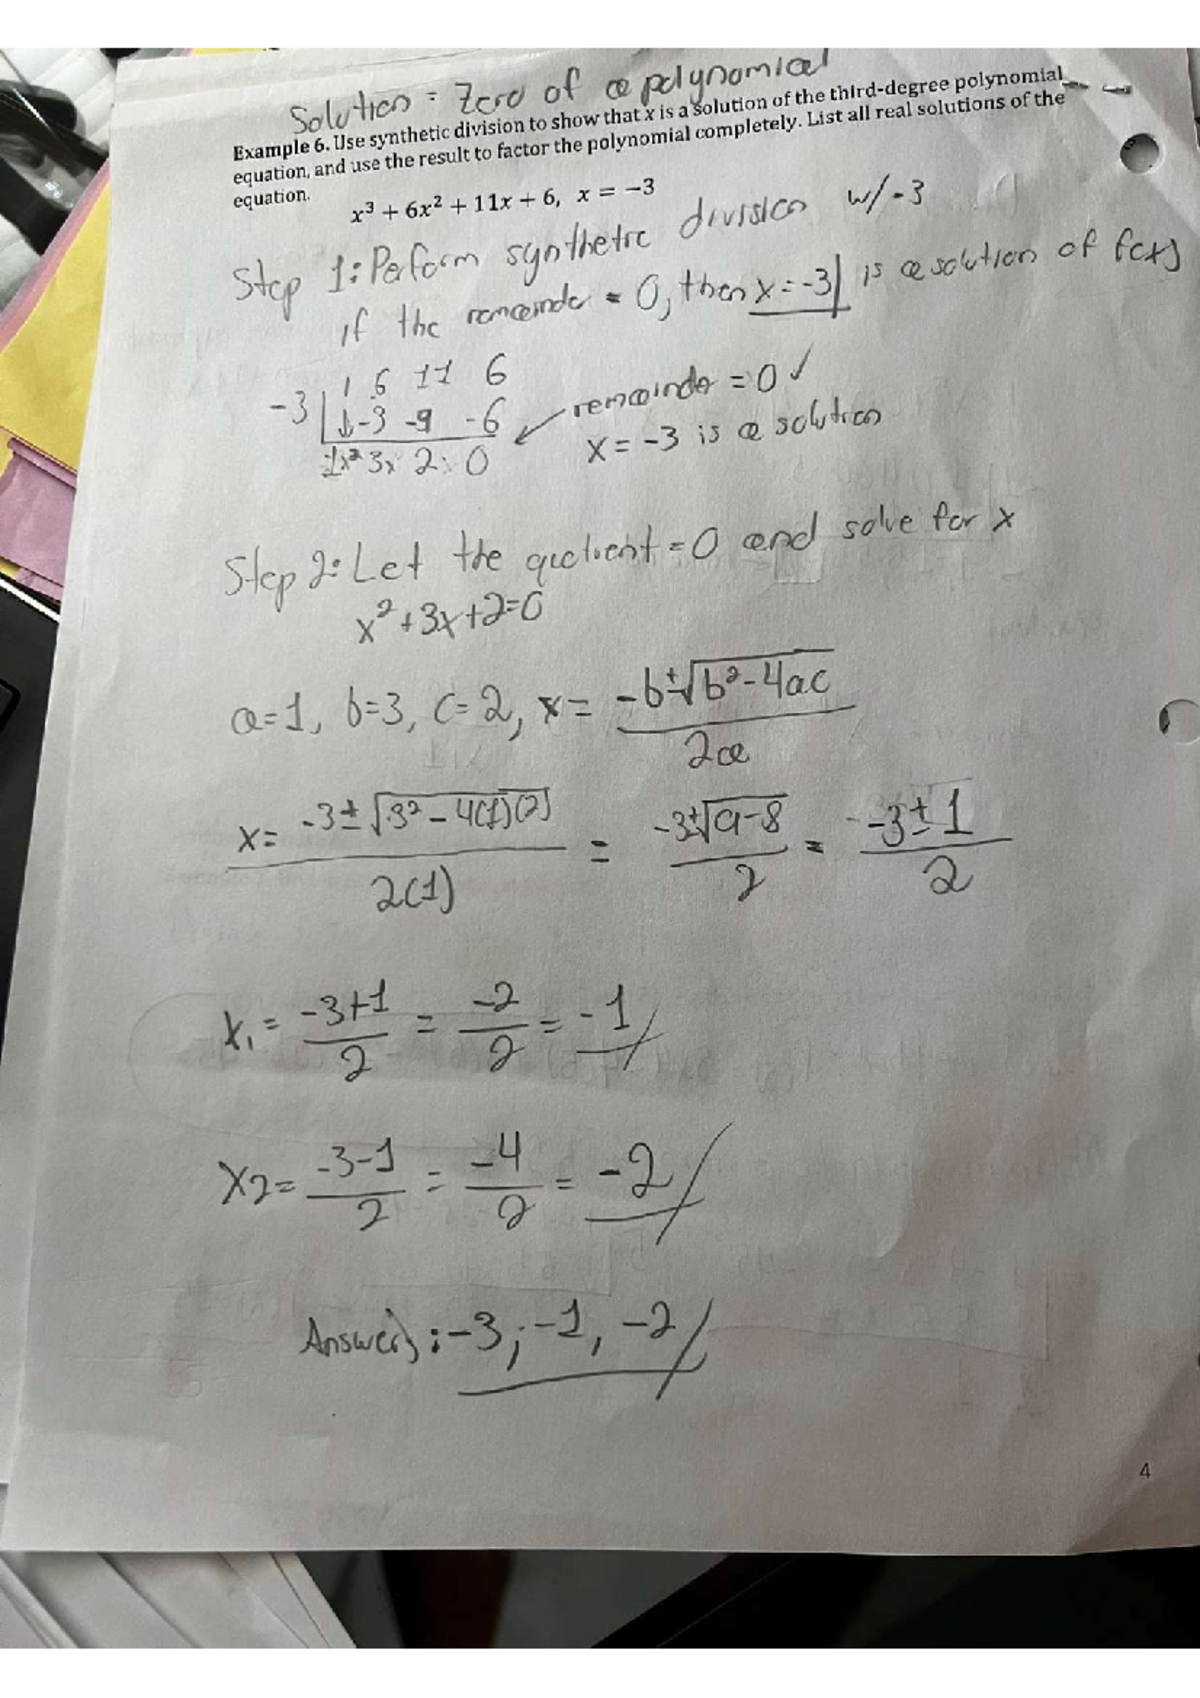 Solution = Zero of a polynomial
Example 6. Use synthetic division to show that x is a solution of the third-degree polynomial
equation, and use the result to factor the polynomial completely. List all real solutions of the
equation.
x³ + 6x² + 11x + 6, x = −3
Step 1: Perform synthetic division w/ -3
if the remainder = 0, then x = -3 is a solution of f(x)
1 6 11 6
-3 | ↓ -3 -9 -6
1x² 3x 2 0
remainder = 0 ✓
x = -3 is a solution
Step 2: Let the quotient = 0 and solve for x
x² + 3x + 2 = 0
a=1, b=3, c=2, x = (-b ± √(b² - 4ac)) / 2a
x = (-3 ± √(3² - 4(1)(2))) / 2(1) = (-3 ± √(9-8)) / 2 = (-3 ± 1) / 2
x₁ = (-3+1)/2 = -2/2 = -1
x2 = (-3-1)/2 = -4/2 = -2
Answers: -3, -1, -2
4